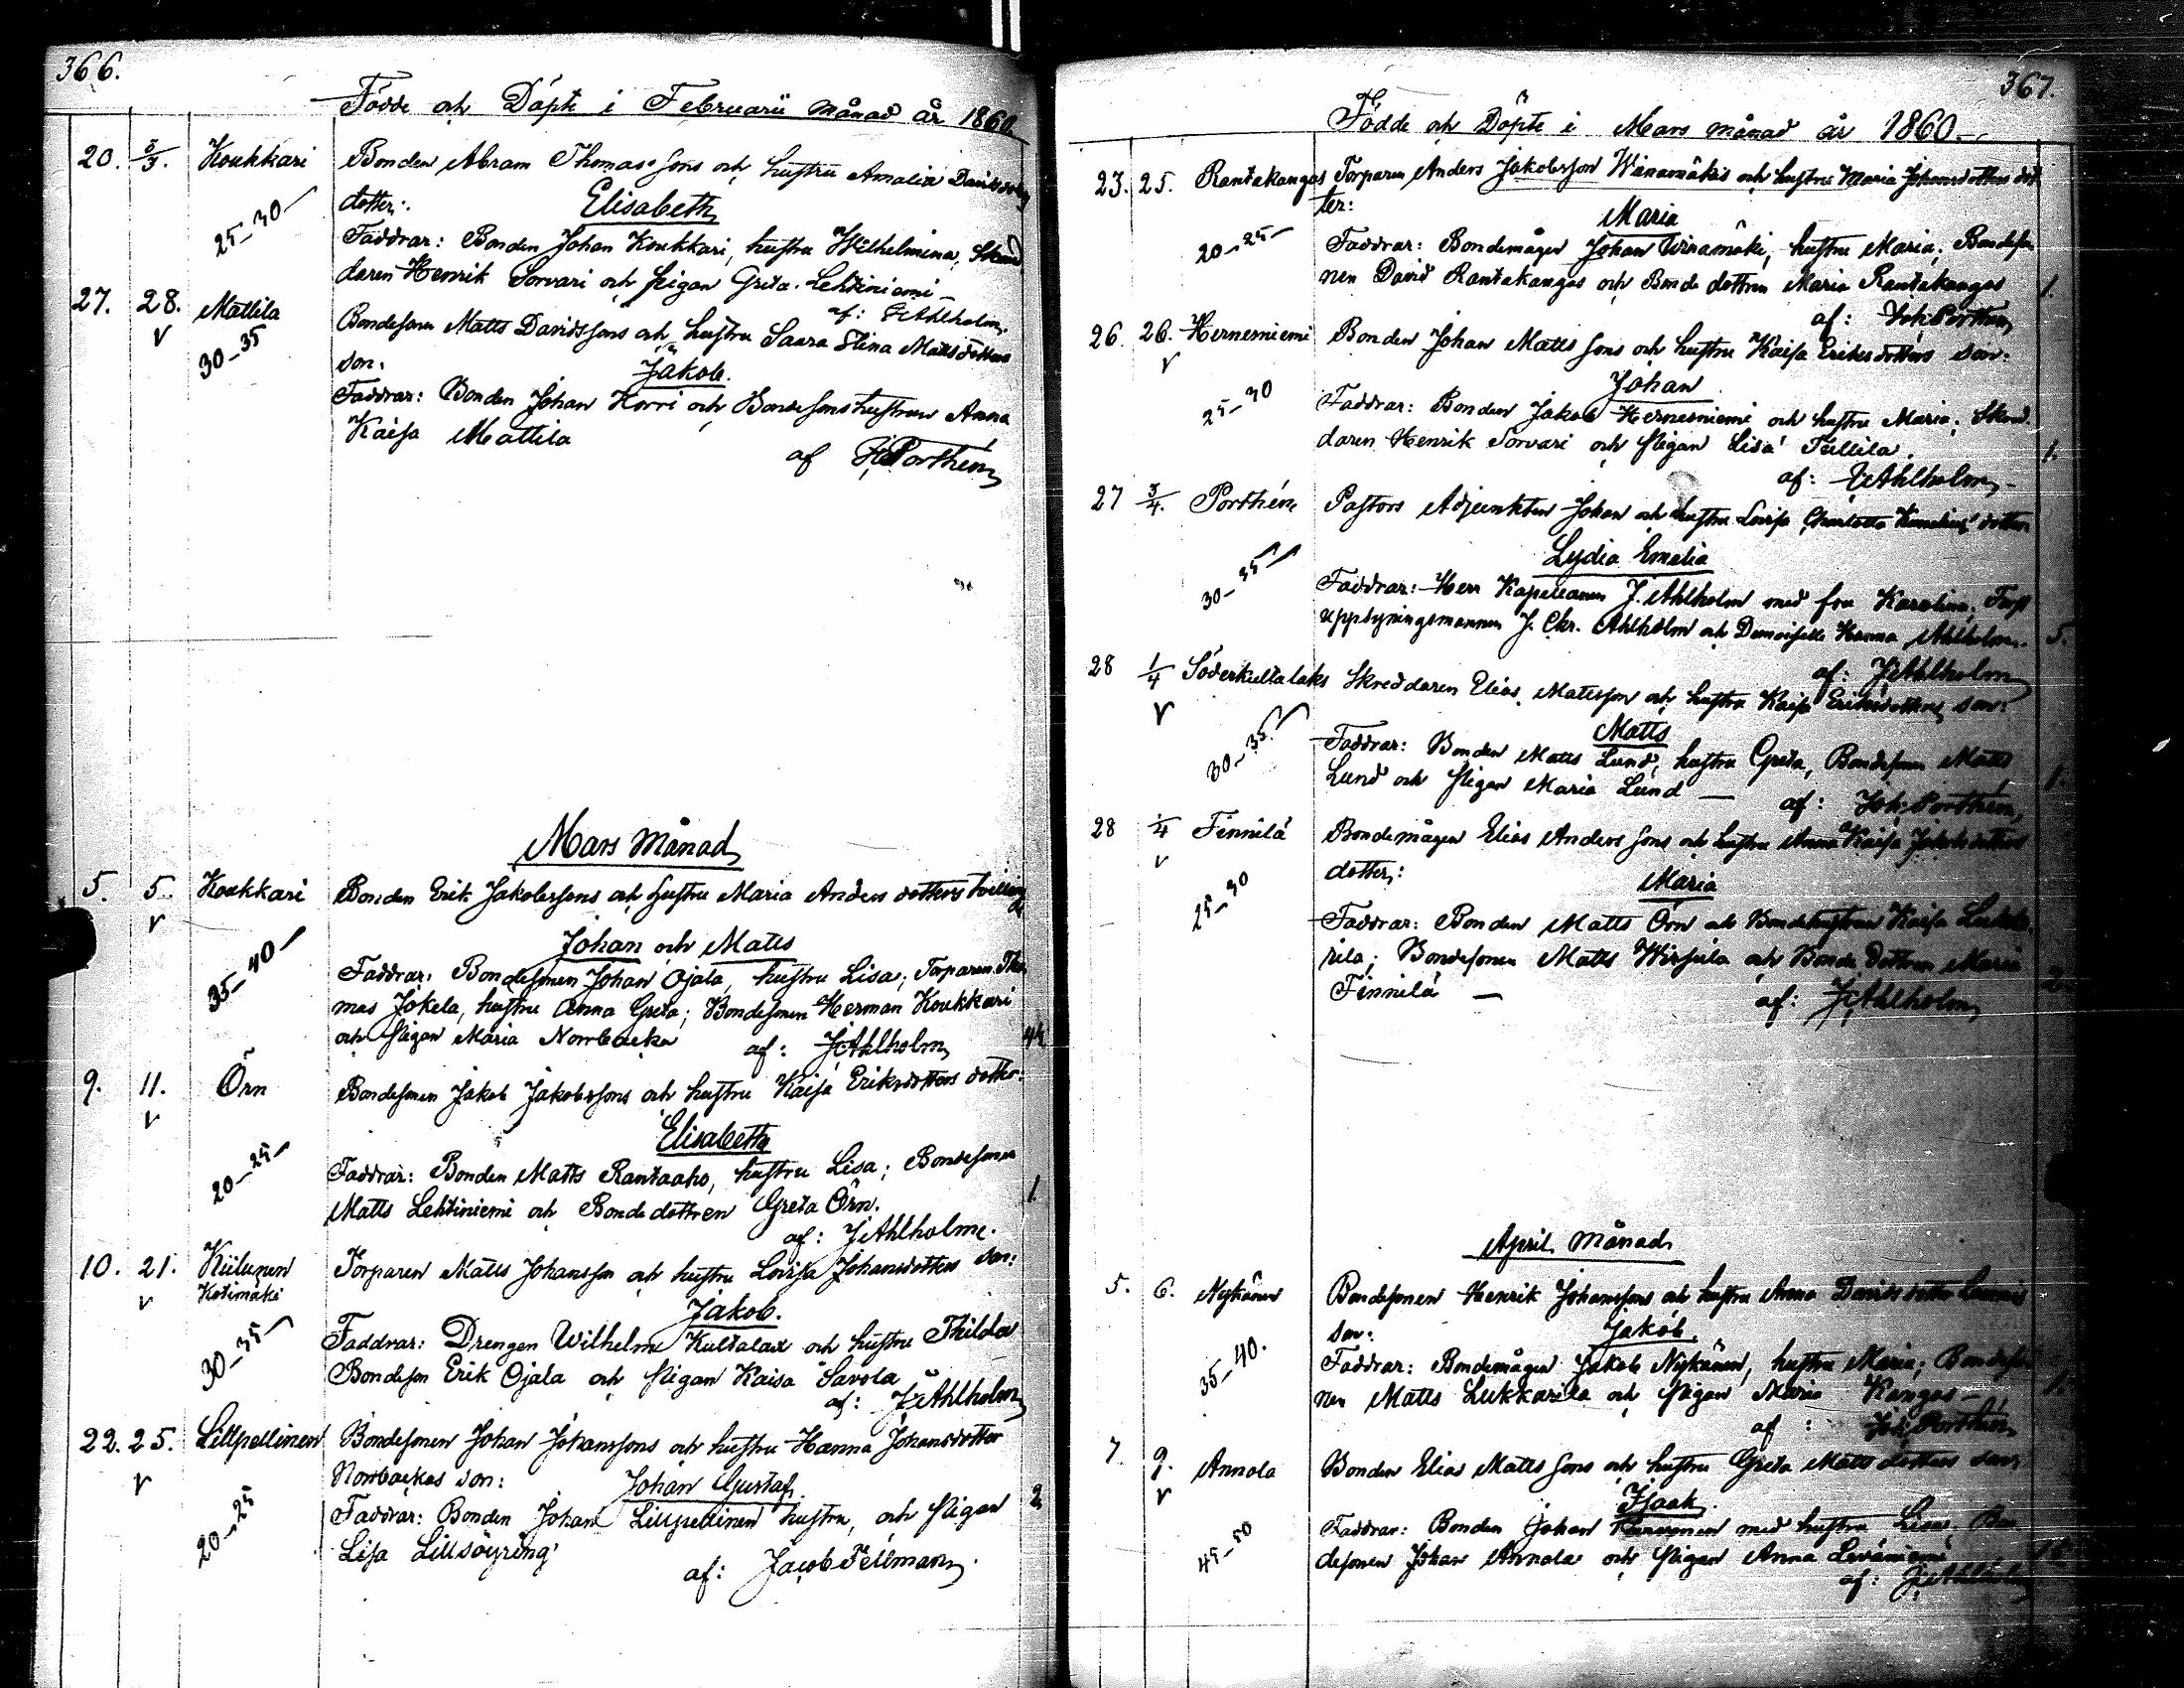 366.
Födde och Döpte i Februarii månad år 1860.
20. 3/3. Koukkari Bonden Abram Thomassons och hustru Amalia Davids
dotter: Elisabeth
25–30
Faddrar: Bonden Johan Koukkari, hustru Wilhelmina, Skräd
daren Henrik Sorvari och pigan Greta Lehtiniemi –
af: J Ahlholm
27. 28. Mattila Bondesonen Matts Davidssons och hustru Saara Stina Mattsdotters
v 30–35
son: Jakob.
Faddrar: Bonden Johan Korri och Bondesonshustrun Anna
Kaisa Mattila
af J Porthén
Mars Månad
5. 5. Koukkari Bonden Erik Jakobssons och hustru Maria Anders dotters tvilling
v
Johan och Matts
35–40
Faddrar: Bondesonen Johan Ojala, hustru Lisa; Torparen Tho
mas Jokela, hustru Anna Greta; Bondesonen Herman Koukkari
och pigan Maria Norrbacka af: J Ahlholm
9. 11. Örn Bondesonen Jakob Jakobssons och hustru Kaisa Eriksdotters dotter:
v
Elisabeth
20–25
Faddrar: Bonden Matts Rantaaho, hustru Lisa; Bondesonen
Matts Lehtiniemi och Bondedottren Greta Örn. 1.
af: J Ahlholm.
10. 21. Kiilunen Torparen Matts Johansson och hustru Lovisa Johansdotters son:
v Kotimäki
Jakob.
30–35
Faddrar: Drengen Wilhelm Kultalax och hustru Thilda
Bondeson Erik Ojala och pigan Kaisa Savola
af: J Ahlholm
22. 25. Lillpellinen Bondesonen Johan Johanssons och hustru Hanna Johansdotter
v
Norrbackas son: Johan Gustaf.
20–25
Faddrar: Bonden Johan Lillpellinen hustru, och pigan 2
Lisa Lillsöyring
af: Jacob Fellman
367.
Födde och Döpte i Mars månad år 1860.
23. 25. Rantakangas Torparen Anders Jakobsson Winamäkis och hustru Maria Johansdotters dot
ter: Maria
20–25
Faddrar: Bondemågen Johan Winamäki, hustru Maria; Bondeso
nen David Rantakangas och Bonde dottren Maria Rantakangas 1.
af: Joh Porthén
26. 26. Hernemiemi Bonden Johan Matts sons och hustru Kaisa Eriksdotters son:
v
Johan
25–30
Faddrar: Bonden Jakob Hernesniemi och hustru Maria; Skräd
daren Henrik Sorvari och pigan Lisa 1.
af: J Ahlholm
27 3/4. Porthén Pastors Adjunkten Johan och hustru Lovisa Charlotta dotter
Lydia Emalia
30–35
Faddrar: Herr Kapellanen J. Ahlholm med fru Karolina; Forst
uppsyningsmannen J. Chr. Ahlholm och Demoiselle Hanna Ahlholm. 5.
af: J Ahlholm
28 1/4 Söderkultalaks Skreddaren Elias Matsson och hustru Kaisa Eriksdotters son:
v
Matts
30–35
Faddrar: Bonden Matts Lund, hustru Greta, Bondesonen Matts
Lund och pigan Maria Lund – af: Joh. Porthén 1.
28 1/4 Finnilä Bondemågen Elias Anders sons och hustru Anna Kaisa Jakobsdotters
v
dotter: Maria
25–30
Faddrar: Bonden Matts Örn och Bondehustrun Kaisa Lukka
rila; Bondesonen Matts Wirsula och Bonde dottren Maria
Finnilä – af: J Ahlholm
April månad
5. 6. Nykänen Bondesonen Henrik Johanssons och hustru Anna Davidsdotter
son: Jakob.
35–40.
Faddrar: Bondemågen Jakob Nykänen, hustru Maria; Bondeso
nen Matts Lukkarila och pigan Maria Kangas – 1.
af: Joh. Porthén
7 9. Annola Bonden Elias Matts sons och hustru Greta Matts dotters son
v
Isaak.
45–50
Faddrar: Bonden Johan med hustru Lisa, Bon
desonen Johan Annola och pigan Anna Leväniemi
af: J Ahlholm